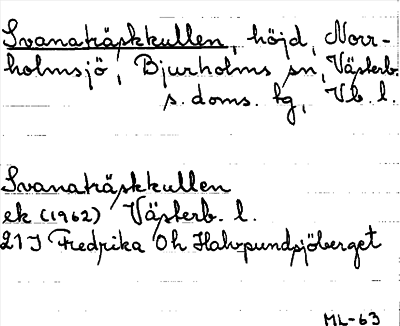 Svanaträskkullen, höjd, Norr-
holmsjö, Bjurholms sn, Västerb.
s. doms. tg, Vb. l.
Svanaträskkullen
ek (1962) Västerb. l.
21 I Fredrika Oh Halvpundsjöberget
ML-63